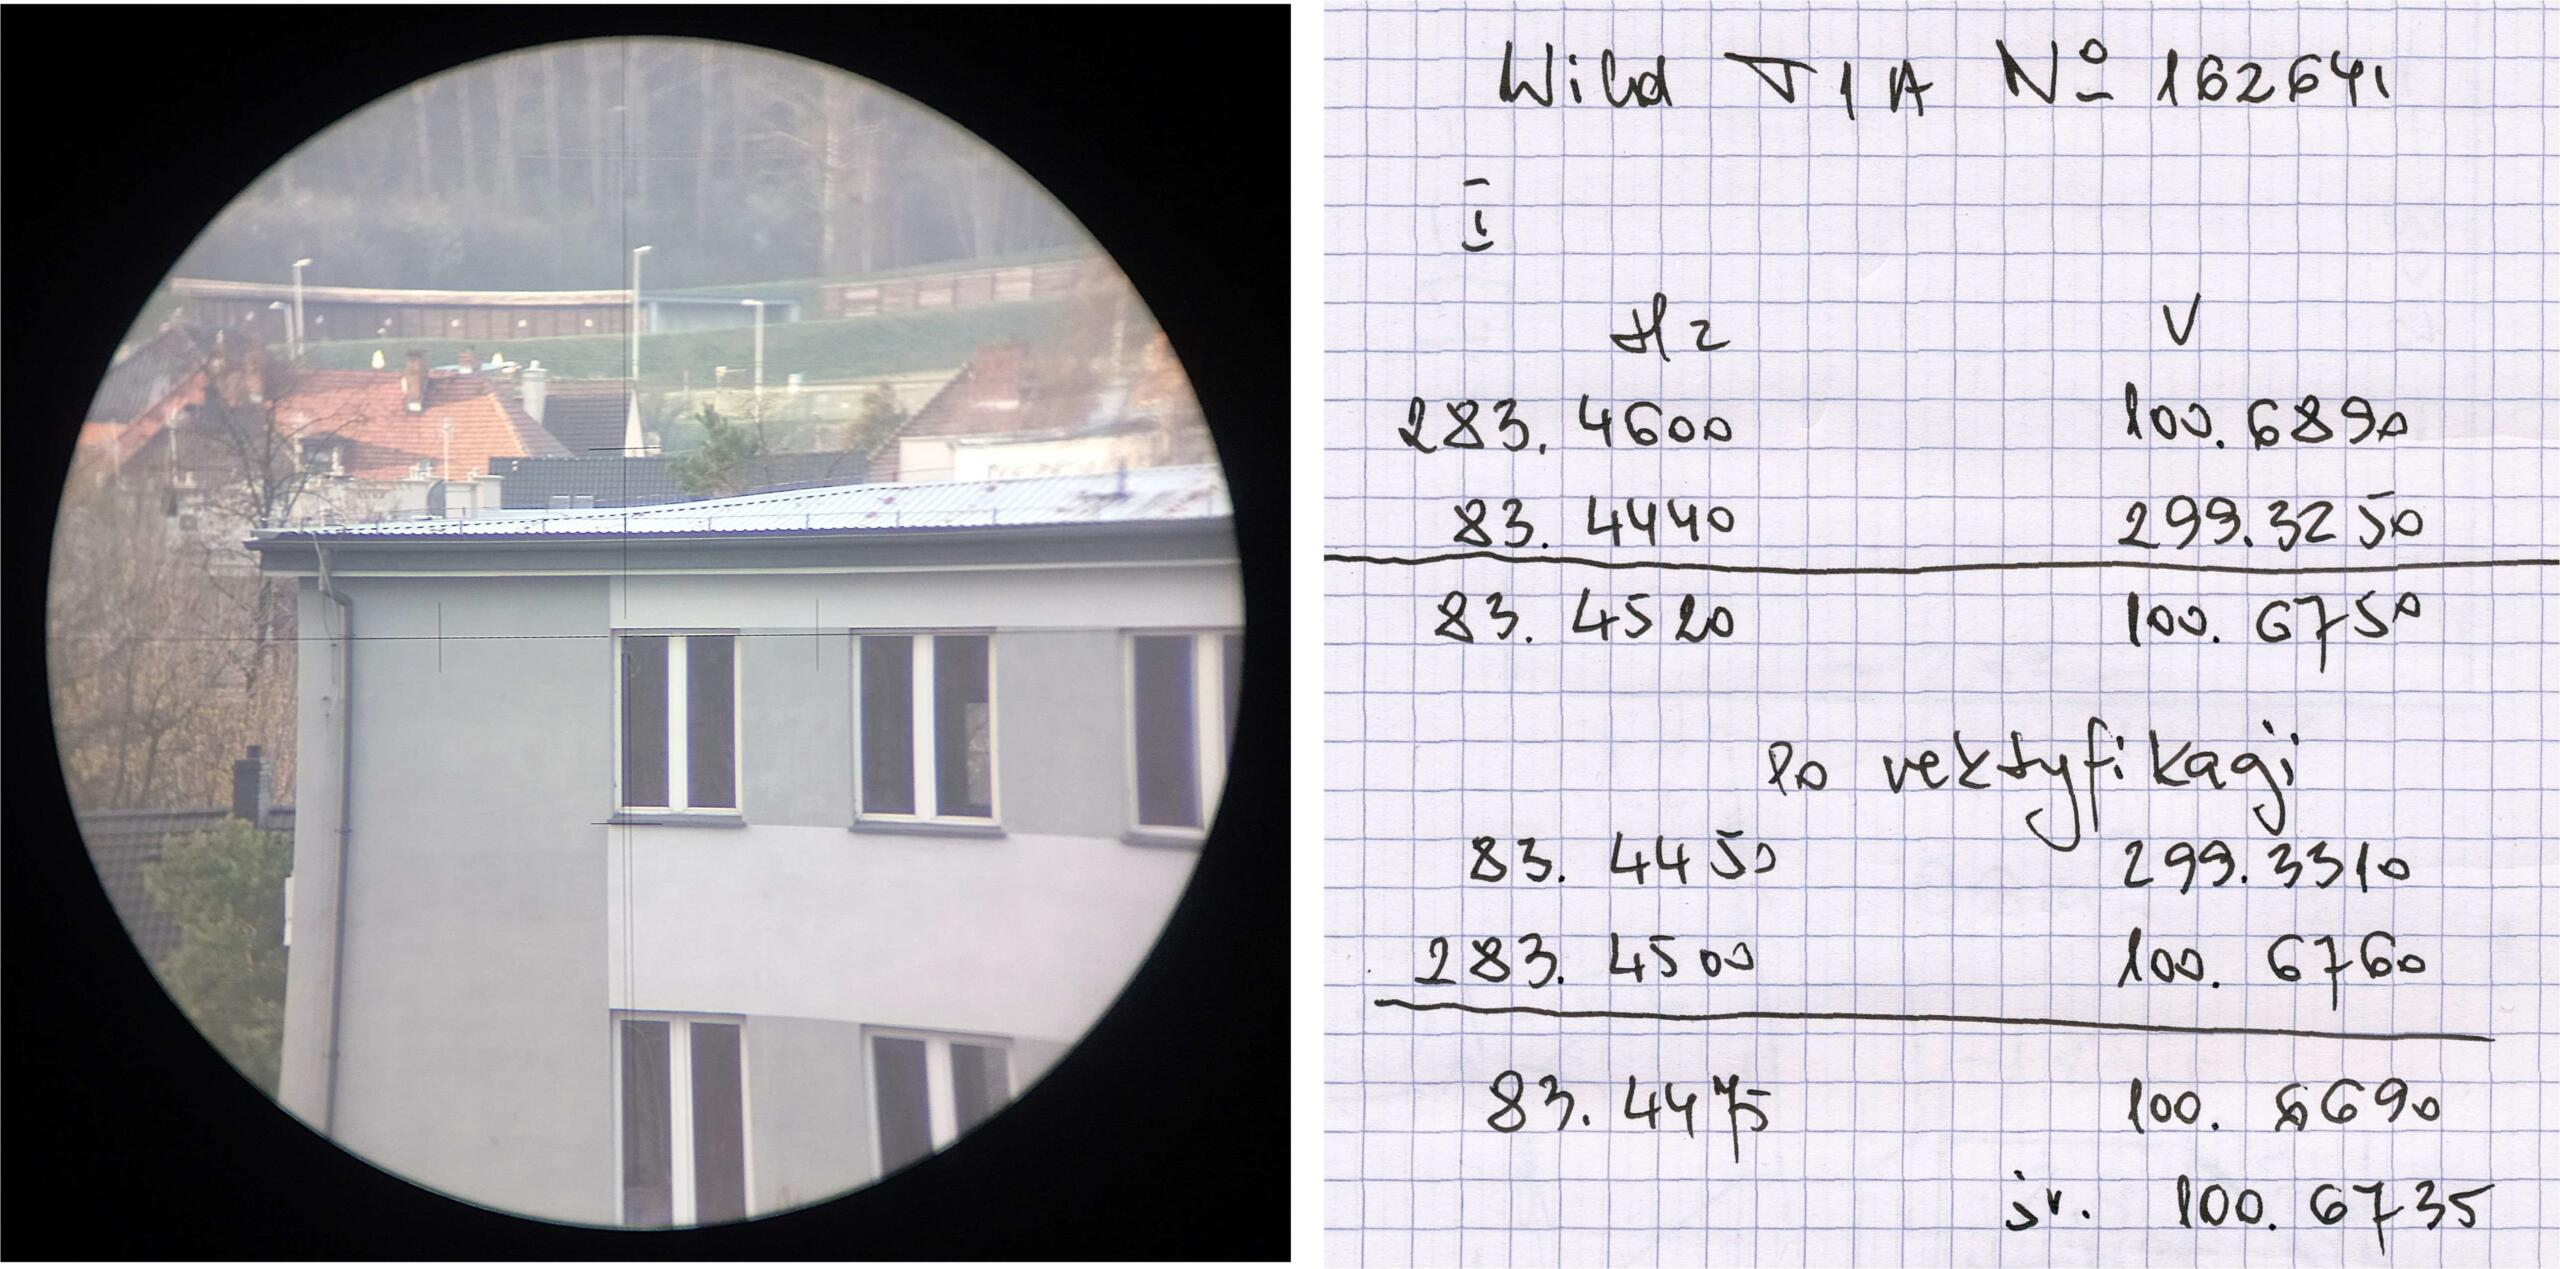 Wild T1A № 162641
I
Hz V
283. 4600 100. 6890
83. 4440 299. 3250
83. 4520 100. 6750
Po rektyfikacji
83. 4450 299. 3310
283. 4500 100. 6760
83. 4475 100. 6690
śr. 100. 6735